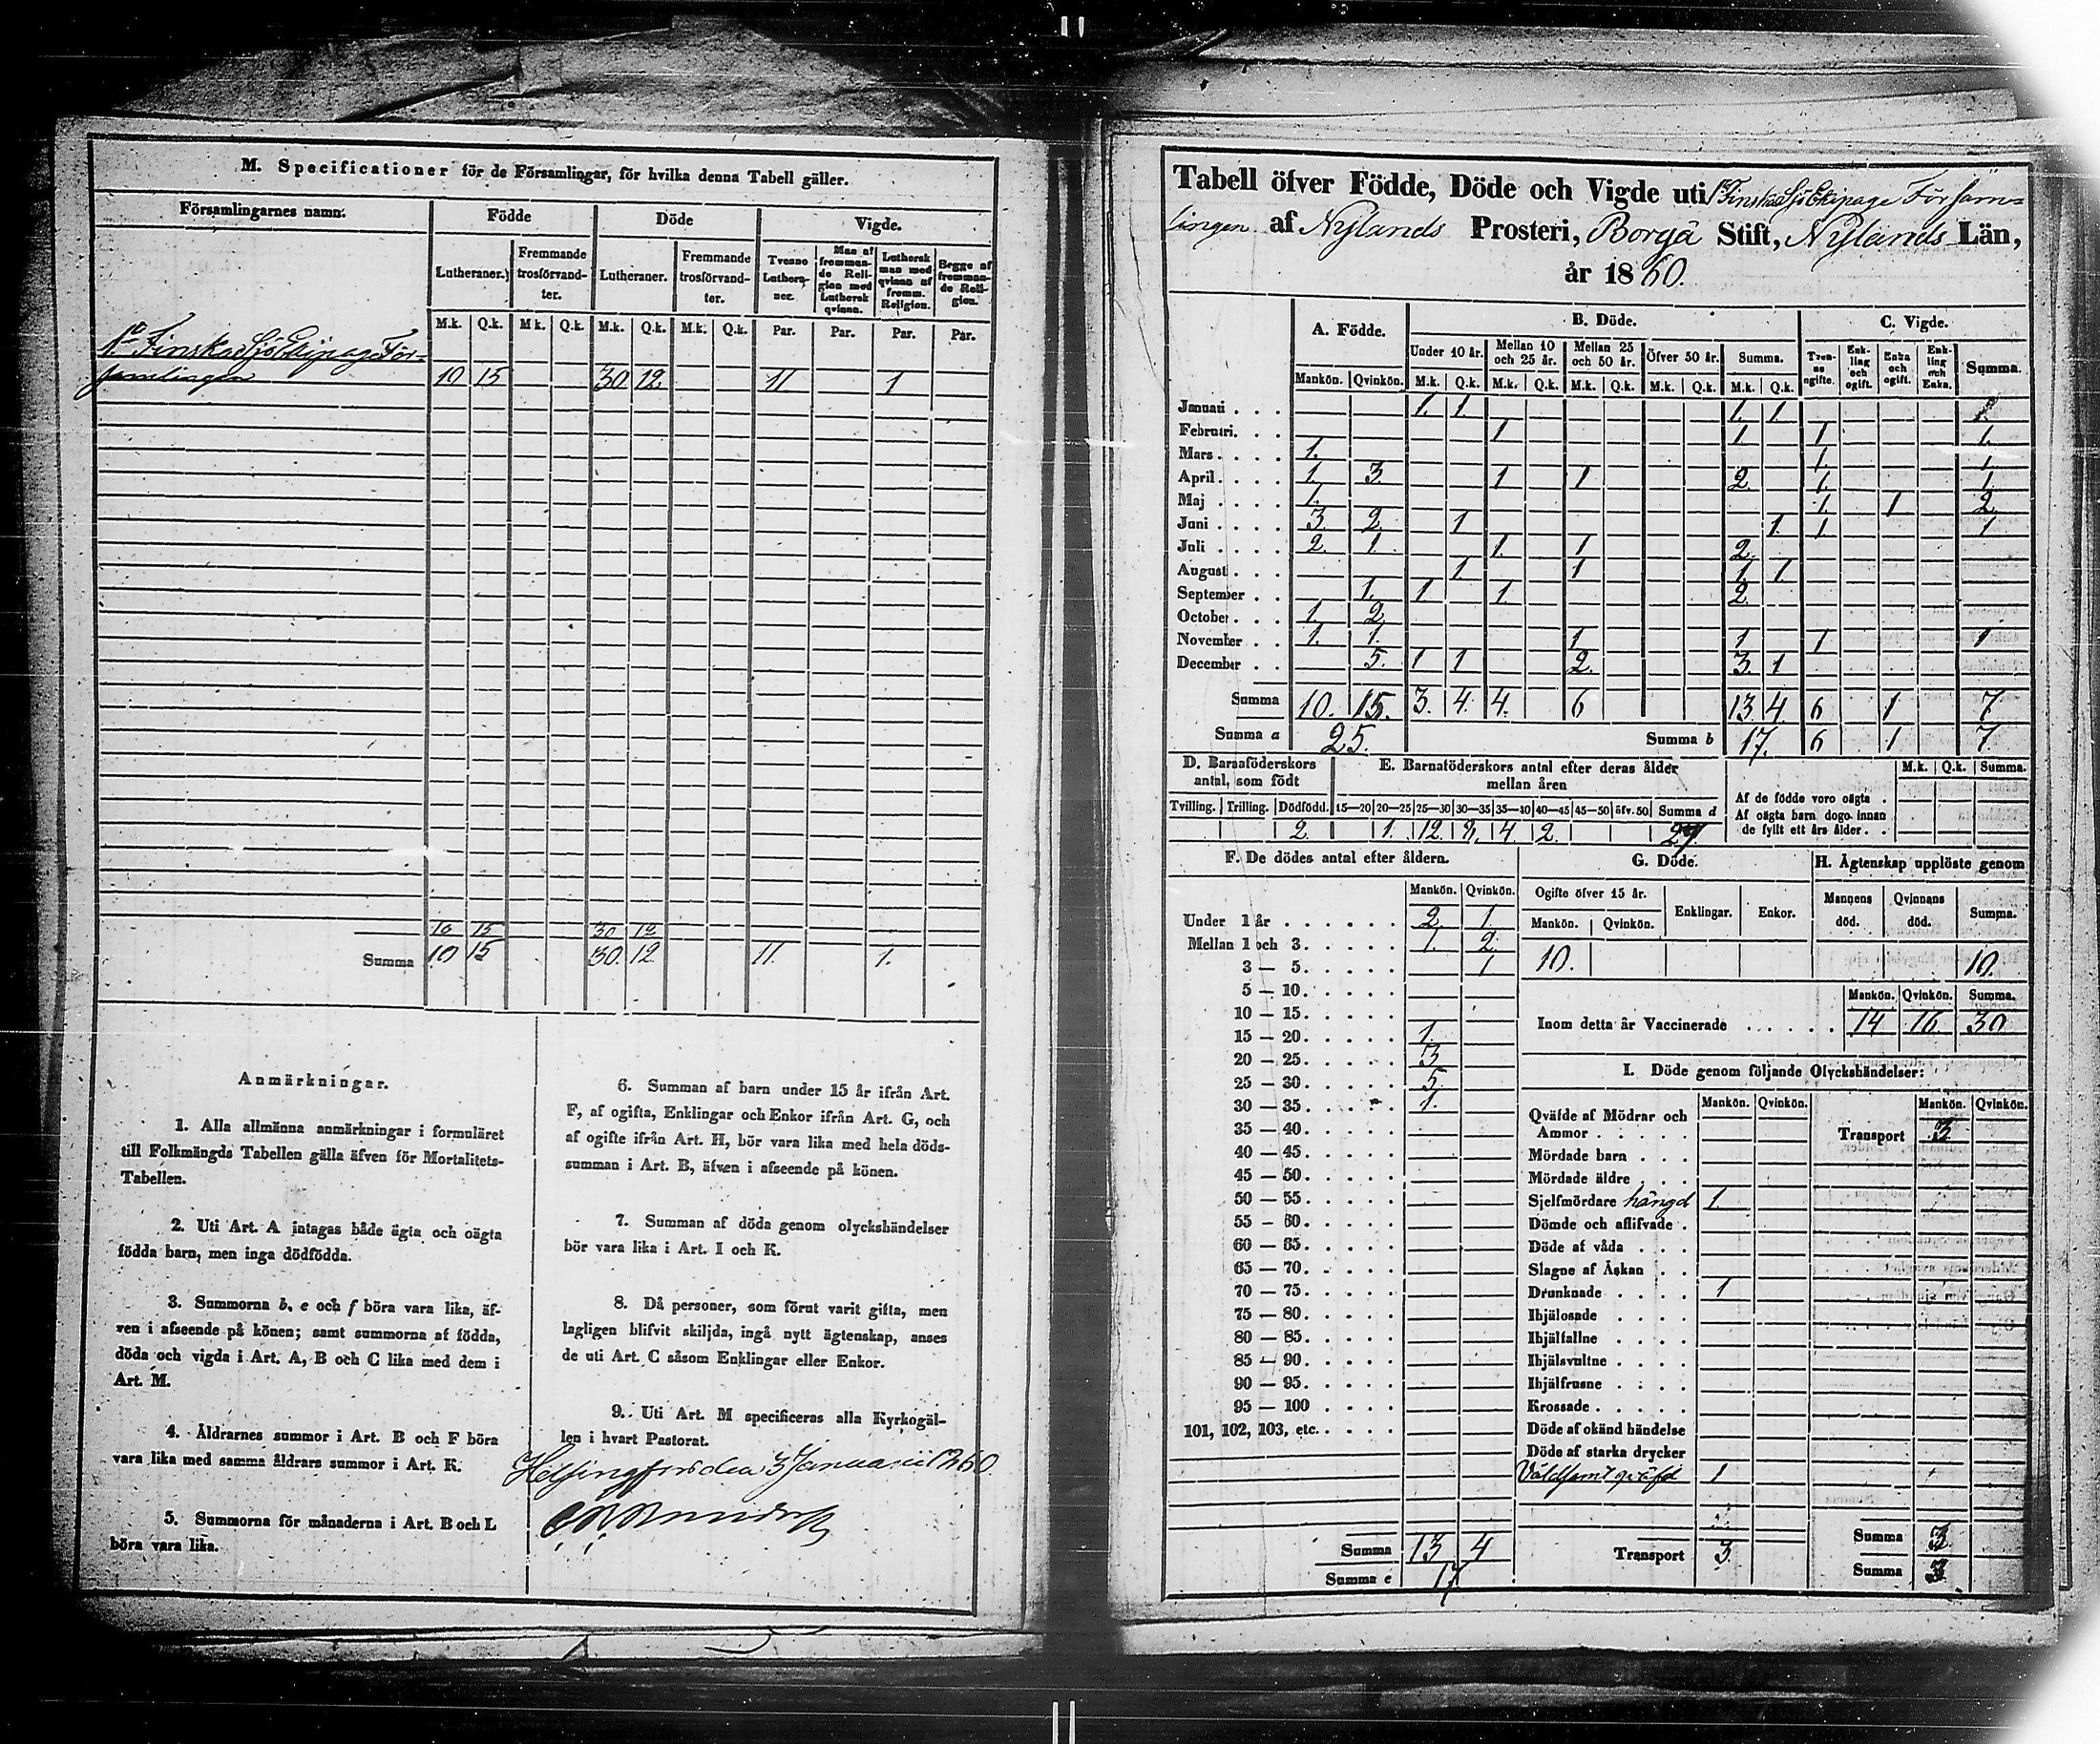 M. Specificationer för de Församlingar, för hvilka denna Tabell gäller.
Församlingarnes namn. Födde Döde Vigde.
Lutheraner. Fremmande trosförvandter. Lutheraner. Fremmande trosförvandter. Tvenne Lutheraner. Man af fremmande Religion med Luthersk qvinna. Luthersk man med qvinna af fremm. Religion. Begge af fremmande Religion.
M.k. Q.k. M.k. Q.k. M.k. Q.k. M.k. Q.k. Par. Par. Par. Par.
1a Finska Sjö Ekipage För-
samlingen 10 15 30 12 11 1
10 15 30 12
Summa 10 15 30. 12 11. 1.
Anmärkningar.
1. Alla allmänna anmärkningar i formuläret
till Folkmängds Tabellen gälla äfven för Mortalitets-
Tabellen.
2. Uti Art. A intagas både ägta och oägta
födda barn, men inga dödfödda.
3. Summorna b, e och f böra vara lika, äf-
ven i afseende på könen; samt summorna af födda,
döda och vigda i Art. A, B och C lika med dem i
Art. M.
4. Åldrarnes summor i Art. B och F böra
vara lika med samma åldrars summor i Art. K.
5. Summorna för månaderna i Art. B och L
böra vara lika.
6. Summan af barn under 15 år ifrån Art.
F, af ogifta, Enklingar och Enkor ifrån Art. G, och
af ogifte ifrån Art. H, bör vara lika med hela döds-
summan i Art. B, äfven i afseende på könen.
7. Summan af döda genom olyckshändelser
bör vara lika i Art. I och K.
8. Då personer, som förut varit gifta, men
lagligen blifvit skiljda, ingå nytt ägtenskap, anses
de uti Art. C såsom Enklingar eller Enkor.
9. Uti Art. M specificeras alla Kyrkogäl-
len i hvart Pastorat.
Helsingfors den 3 Januarii 1860
Tabell öfver Födde, Döde och Vigde uti 1a Finska Sjö Ekipage Försam-
lingen af Nylands Prosteri, Borgå Stift, Nylands Län,
år 1860.
A. Födde. B. Döde. C. Vigde.
Under 10 år. Mellan 10 och 25 år. Mellan 25 och 50 år. Öfver 50 år. Summa. Tvenne ogifte. Enkling och ogift. Enka och ogift. Enkling och Enka. Summa.
Mankön. Qvinkön. M.k. Q.k. M.k. Q.k. M.k. Q.k. M.k. Q.k. M.k. Q.k.
Januari 1. 1 1. 1 1.
Februari. 1 1 1 1.
Mars 1. 1. 1
April 1 3 1 1 2. 1. 1
Maj 1. 1. 1 2
Juni 3. 2. 1 1. 1 1
Juli 2. 1. 1. 1 2.
August 1 1 1. 1
September 1. 1 1. 2.
October 1. 2.
November 1. 1. 1 1 1 1
December 5. 1 1 2. 3. 1
Summa 10. 15. 3. 4. 4. 6 13. 4. 6 1 7
Summa a 25. Summa b 17. 6 1 7
D. Barnaföderskors antal, som födt
E. Barnaföderskors antal efter deras ålder mellan åren
M.k. Q.k. Summa.
Tvilling. Trilling. Dödfödd. 15—20 20—25 25—30 30—35 35—40 40—45 45—50 öfv. 50 Summa d
2. 1. 12 8. 4. 2. 27.
Af de födde voro oägta .
Af oägta barn dogo innan
de fyllt ett års ålder . .
F. De dödes antal efter åldern.
Mankön. Qvinkön.
Under 1 år 2. 1.
Mellan 1 och 3 1. 2.
3 — 5 1
5 — 10
10 — 15
15 — 20 1.
20 — 25 3
25 — 30 5.
30 — 35 1.
35 — 40
40 — 45
45 — 50
50 — 55
55 — 60
60 — 65
65 — 70
70 — 75
75 — 80
80 — 85
85 — 90
90 — 95
95 — 100
101, 102, 103, etc.
Summa 13 4
Summa e 17
G. Döde.
Ogifte öfver 15 år. Enklingar. Enkor.
Mankön. Qvinkön.
10.
H. Ägtenskap upplöste genom
Mannens död. Qvinnans död. Summa.
10.
Mankön. Qvinkön. Summa.
Inom detta år Vaccinerade 14 16 30
I. Döde genom följande Olyckshändelser:
Mankön. Qvinkön. Mankön. Qvinkön.
Qväfde af Mödrar och
Ammor
Transport 3
Mördade barn
Mördade äldre
Sjelfmördare hängd 1.
Dömde och aflifvade
Döde af våda
Slagne af Åskan
Drunknade 1
Ihjälosade
Ihjälfallne
Ihjälsvultne
Ihjälfrusne
Krossade
Döde af okänd händelse
Döde af starka drycker
Våldsamt qväfd 1
Transport 3
Summa 3
Summa 3